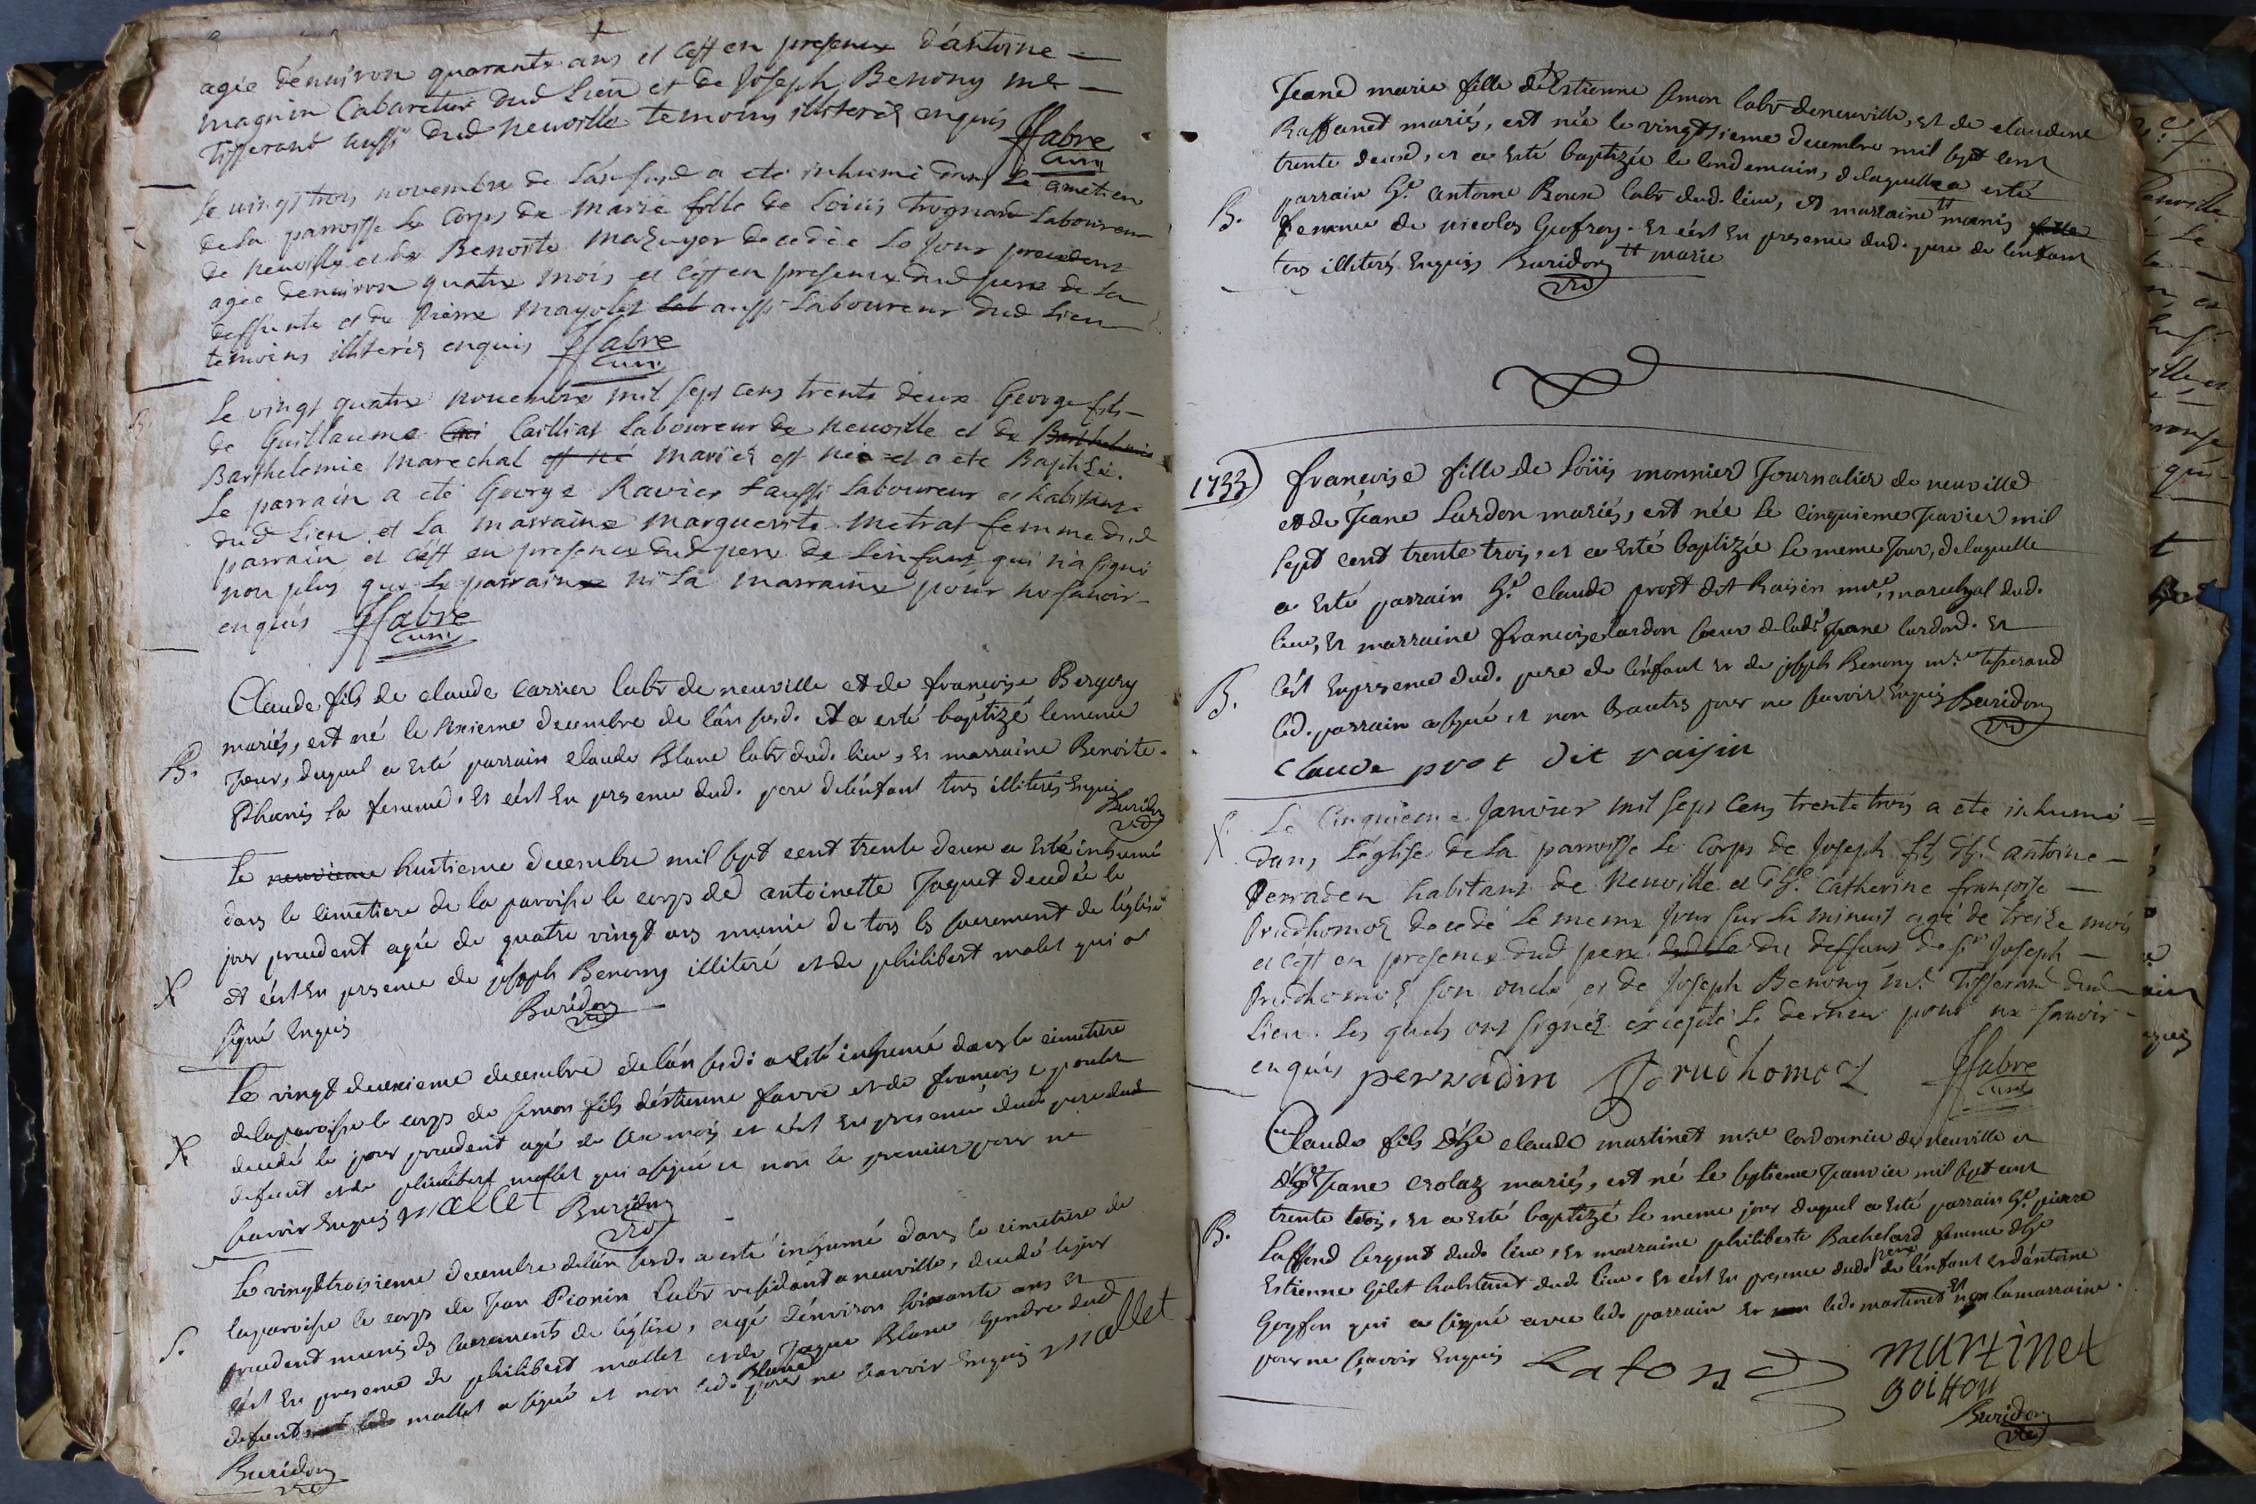 agée d'environ quarante ans et c'est en presence d'antoine
magnin Cabaretier dud Lieu et de Joseph Benony me
Tisserand aussi dud neuville temoins illiterés enquis ffabre
curé
Le vingt trois novembre de l'an susd a eté inhumé dans le cimetiere
de la paroisse le Corps de marie fille de Loüis Laboureur
de neuville et de Benoite mazuyer decedée le jour precedent
agée denviron quatre mois et c'est en presence dud pere de la
deffunte et de Pierre mayolet aussi Laboureur dud Lieu
temoins illiterés enquis ffabre
curé
B.
Le vingt quatre novembre mil sept cens trente deux George fils
de Guillaume Cailliat Laboureur de neuville et de
Barthelemie marechal mariés est né et a ete Baptisé.
Le parrain a eté George Ravier aussi Laboureur et habitant
dud Lieu et la marraine marguerite metrat femme dud
parrain et c'est en presence dud pere de l'enfant qui n'a signé
non plus que le parrain ni la marraine pour ne savoir
enquis ffabre
curé
Claude fils de claude carrier labr de neuville et de francoise Bergery
mariés, est né le sixieme decembre de l'an susd. et a esté baptizé le meme
B.
jour, duquel a esté parrain claude Blanc labr dud. lieu, et marraine Benoite
Phanis sa femme. et c'est en presence dud. pere de l'énfant tous illiterés enquis
Buridon
vic
Le neuvieme huitieme decembre mil sept cent trente deux a esté inhumé
dans le cimetiere de la paroisse le corps de antoinette Jaquet decedée le
jour precedent agée de quatre vingt ans munie de tous les sacrement de l'église
X
et c'est en presence de joseph Benony illiteré et de philibert malet qui a
signé enquis Buridon
vic
Le vingt deuxieme decembre de l'an susd: a esté inhumé dans le cimetiere
de la paroisse le corps de simon fils d'éstienne favre et de francoise poulet
X
decedé le jour precedent agé de six mois et c'est en presence dud. pere dud.
defunt et de philibert mallet qui a signé et non le premier pour ne
savoir enquis mallet Buridon
vic
Le vingt troisieme decembre de l'an susd. a esté inhumé dans le cimetiere de
la paroisse le corps de jean Pionin labr residant a neuville, decedé le jour
S.
precedent munis des sacrements de l'église, agé d'environ soixante ans et
c'est en presence de philibert mallet et de Jaque Blanc gendre dud
defunt mallet a signé et non led. Blanc pour ne savoir enquis mallet
Buridon
vic
Jeane marie fille d'Estienne simon labr de neuville, et de claudine
Raffanet mariés, est née le vingtsieme decembre mil sept cent
trente deux, et a esté baptizée le lendemain, de laquelle a esté
B.
parrain hte antoine Roux labr dud. lieu, et marraine
femme de nicolas Geofray. et c'est en presence dud. pere de l'enfant
tous illiterés enquis Buridon marie
vic
1733
francoise fille de Loüis monnier Journalier de neuville
et de Jeane Lardon mariés, est née le cinquieme Janvier mil
sept cent trente trois, et a esté baptizée le meme jour, de laquelle
a esté parrain hte claude prost dit Raisin mtre marechal dud.
lieu, et marraine francoise lardon soeur de lade Jeane lardon. et
B.
c'est en presence dud. pere de l'énfant et de joseph Benony mtre tisserand
led. parrain a signé et non les autres pour ne savoir enquis Buridon
vic
claude prot dit raisin
X
Le Cinquieme Janvier mil sept cens trente trois a eté inhumé
dans L'église de la paroisse le Corps de Joseph fils d'hte antoine
Perraden habitant de neuville et d'hte Catherine francoise
Prudhomoz decedé le meme jour sur la minuit agé de treize mois
et c'est en presence dud pere du deffunt de sr Joseph
Prudhomoz son oncle et de Joseph Benony me Tisserand dud
Lieu. les quels ont signez excepté le dernier pour ne savoir
enquis perradin Prudhomoz ffabre
curé
Claude fils d'hte claude martinet mtre cordonnier de neuville et
d'hte Jeane crolaz mariés, est né le septieme Janvier mil sept cent
trente trois, et a esté baptizé le meme jour duquel a esté parrain hte pierre
B.
Laffond sergent dud. lieu, et marraine philiberte Bachelard femme d'hte
Estienne Gilet habitant dud. lieu. et c'est en presence dud. pere de l'énfant et d'antoine
Goyffon qui a signé avec led. parrain et led. martinet et non la marraine.
pour ne scavoir enquis Lafond martinet
goiffon
Buridon
vic